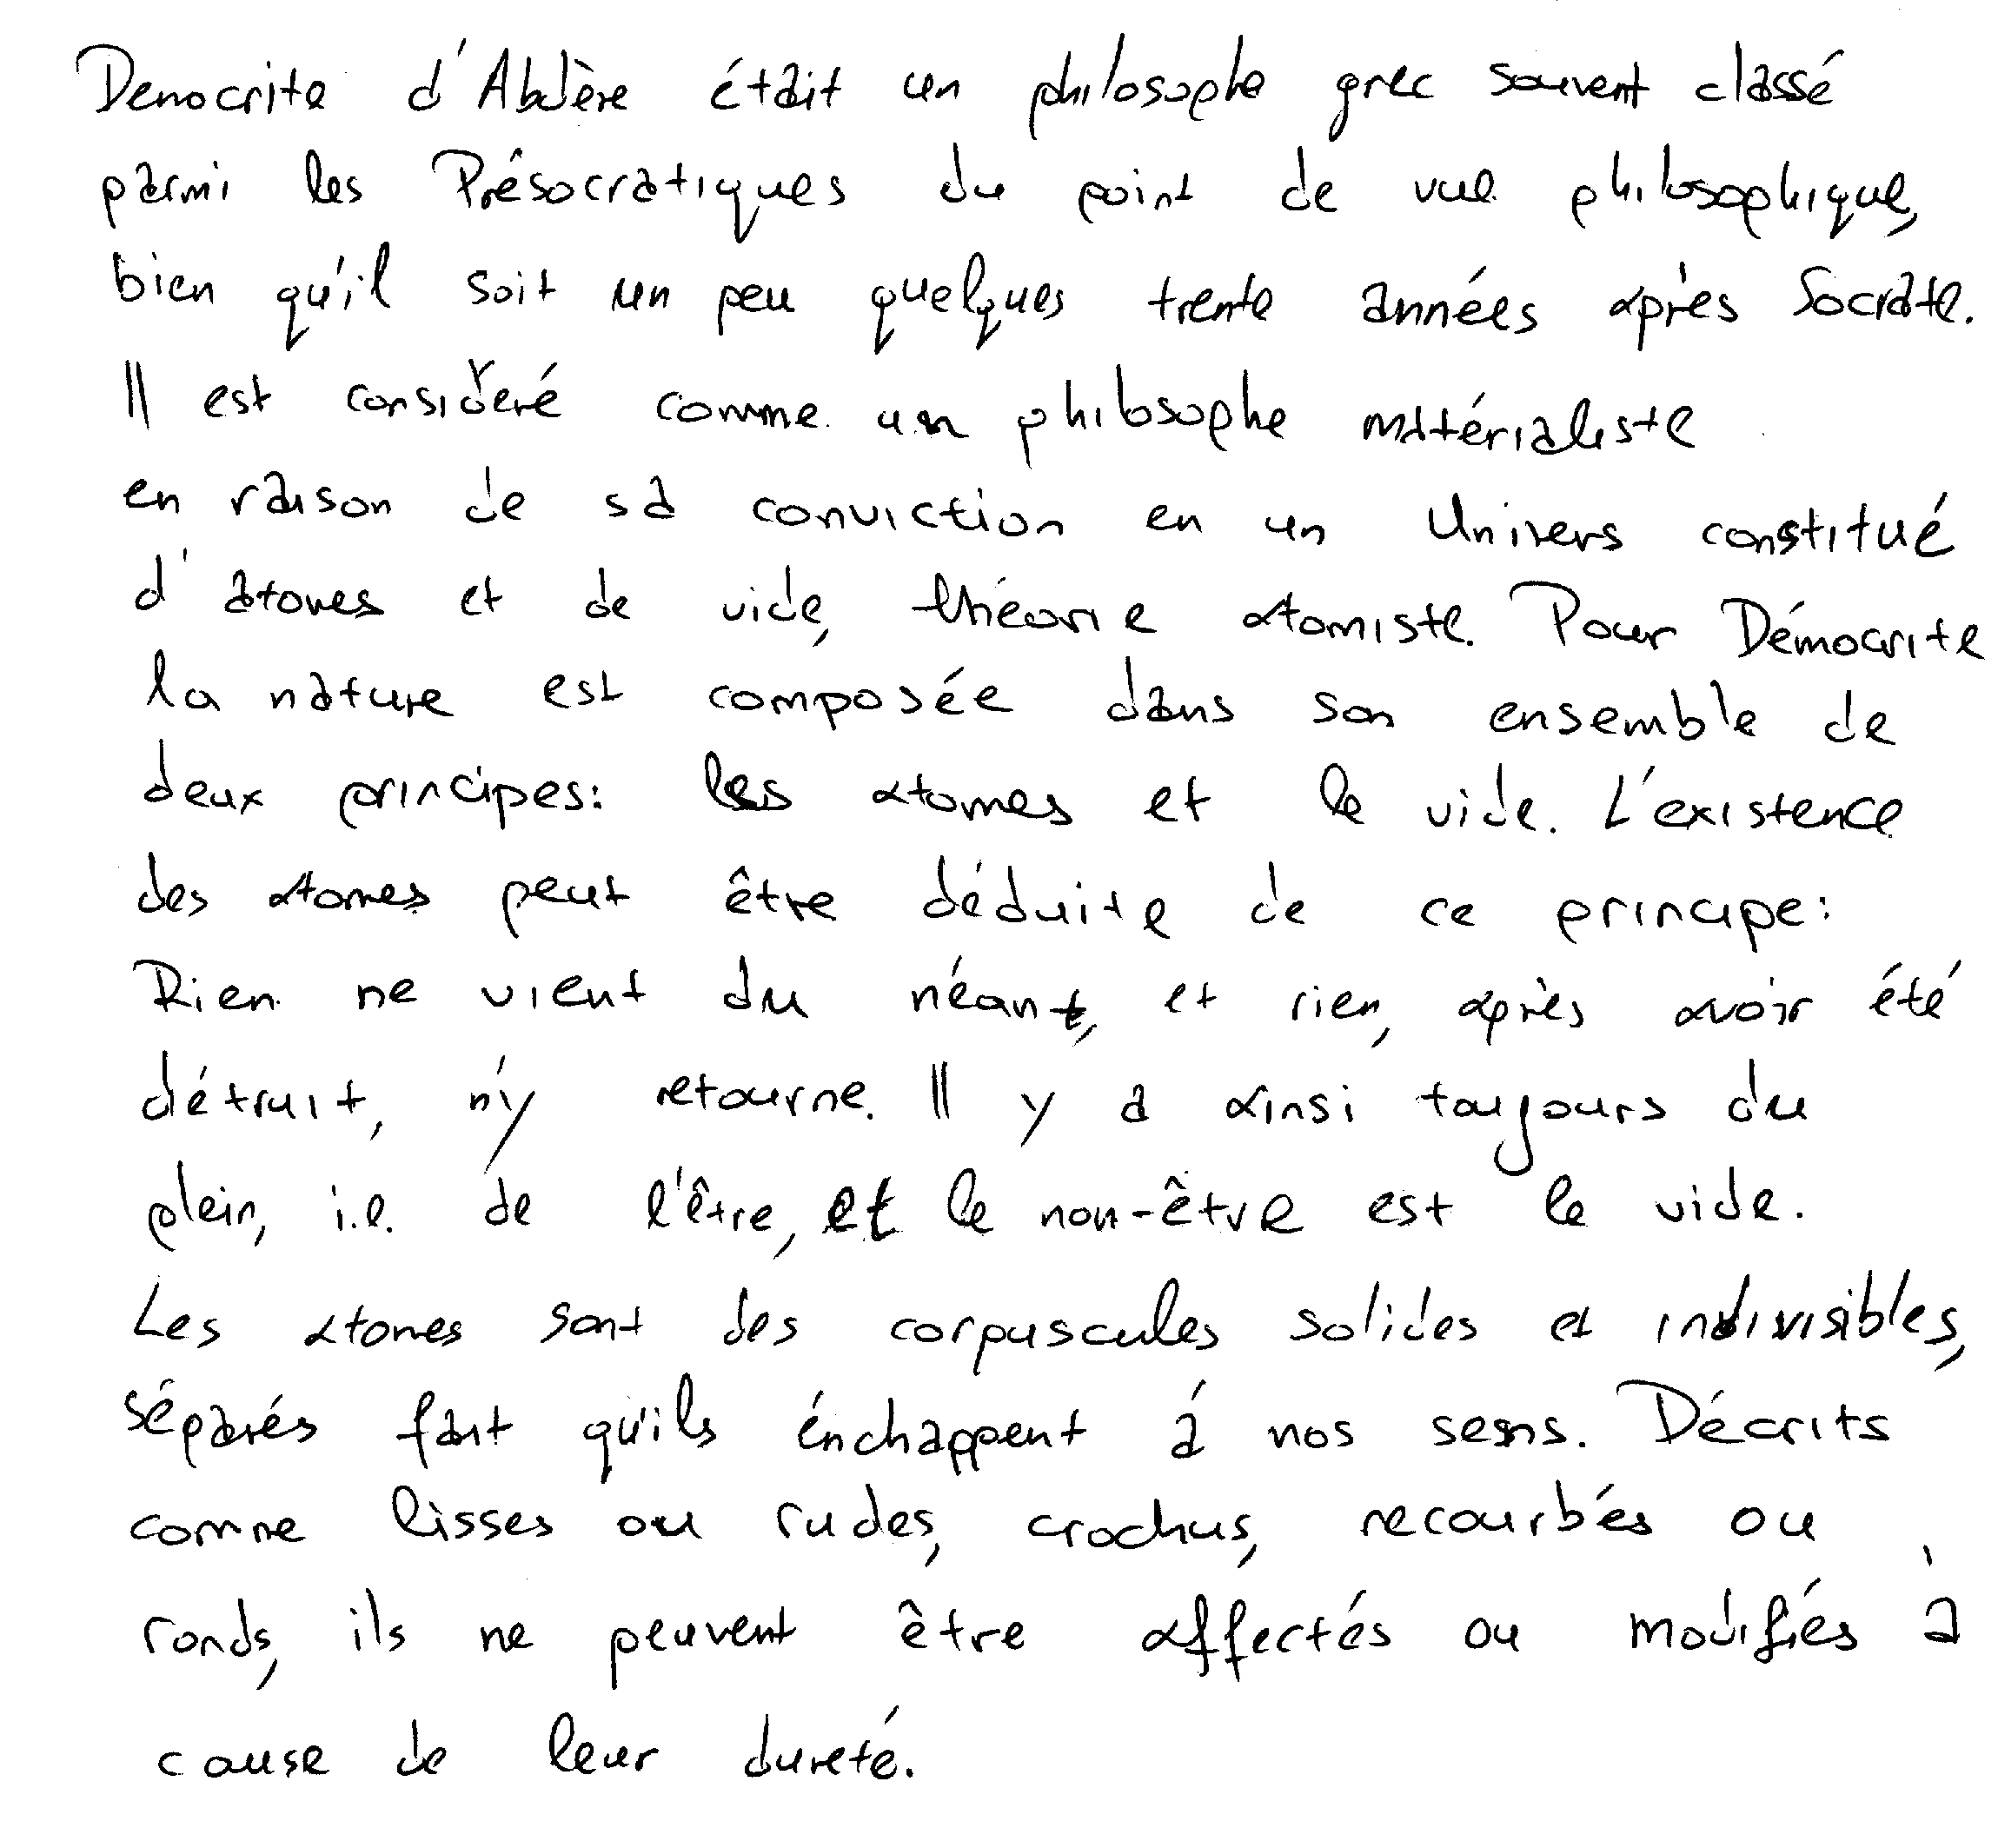 Democrite d'Abdère était un philosophe grec souvent classé
parmi les Présocratiques du point de vue philosophique,
bien qu'il soit un peu quelques trente années après Socrate.
Il est considéré comme un philosophe matérialiste
en raison de sa conviction en un Univers constitué
d'atomes et de vide, théorie atomiste. Pour Démocrite
la nature est composée dans son ensemble de
deux principes: les atomes et le vide. L'existence
des atomes peut être déduite de ce principe:
Rien ne vient du néant, et rien, après avoir été
détruit, n'y retourne. Il y a ainsi toujours du
plein, i.e. de l'être, et le non-être est le vide.
Les atomes sont des corpuscules solides et indivisibles,
séparés fait qu'ils énchappent á nos sens. Décrits
comme lisses ou rudes, crochus, recourbés ou
ronds, ils ne peuvent être affectés ou modifiés à
cause de leur dureté.